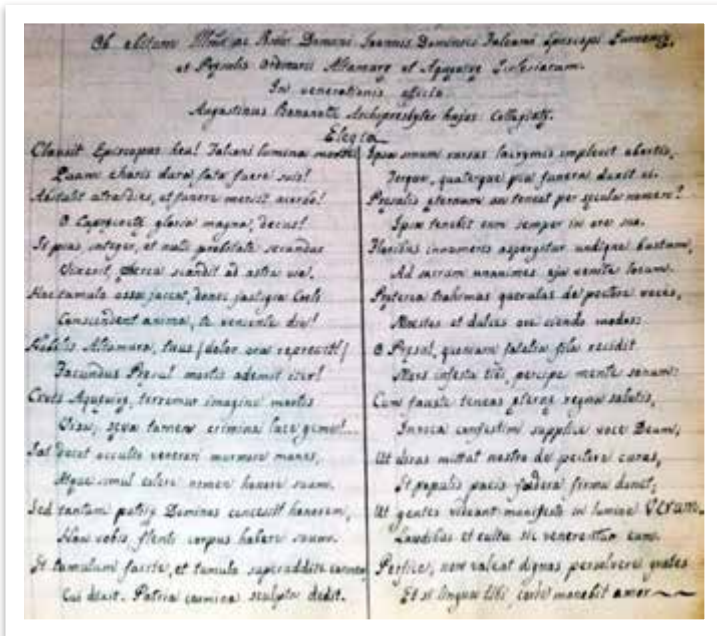 Ob obitum Illmi ac Rmi Domini Joannis Dominici Falconi Episcopi Eumeniæ,
et Præsulis Ordinarii Altamuræ et Aquævivæ Ecclesiarum.
In venerationis officio
Augustinus Bonanotte Archipresbyter hujus Collegiatæ.
Elegia
Clausit Episcopus heu! Falconi lumina morte
Quam charis dura fata fuere suis!
Abstulit atra dies, et funere mersit acerbo!
O Capogirete gloria magna, decus!
Et pius integer, et nulli probitate secundus
Vixerit, scandit ad astra
Hoc tumulo ossa jacent, donec fastigia Coeli
Conscendent anima, te veniente die!
Nobilis Altamura, tuus (dolor ora repressit)
Facundus Præsul mortis ademit iter!
Cives Aquævivæ, terremur imagine mortis
tamen crimina luce
decet occulto venerari murmure manes,
Atque simul colere nomen honore suum.
Sed tantum patriæ Dominus concessit honorem,
vobis flenti corpus habere suum.
Et tumulum facite, et tumulo superaddite carmen
Cui Patria carmina sculpta dedit.
Ipsa sinum rursus lacrymis implevit abortis,
Terque, quaterque pia funera duxit ei.
Præsulis æternum an teneat per sæcula nomen?
Ipsa tenebit eum semper in ore suo.
Floribus innumeris aspergitur undique bustum,
Ad sacrum unanimes ejus venite locum.
Præterea trahimus querulas de pectore voces,
Moestos et dulces ore ciendo modos:
O Præsul, quoniam fatalia fila recidit
Mors infesta tibi, percipe mente sonum:
Cum fauste teneas æternæ regna salutis,
Invoca confestim supplice voce Deum,
Ut diras mittat nostro de pectore curas,
Et populis pacis foedera firma donet;
Ut gentes videant manifesto in lumine VERUM.
Laudibus et cultu sic venerentur eum.
Perfice, non valeat dignas persolvere grates
Et si lingua tibi, corde manebit amor